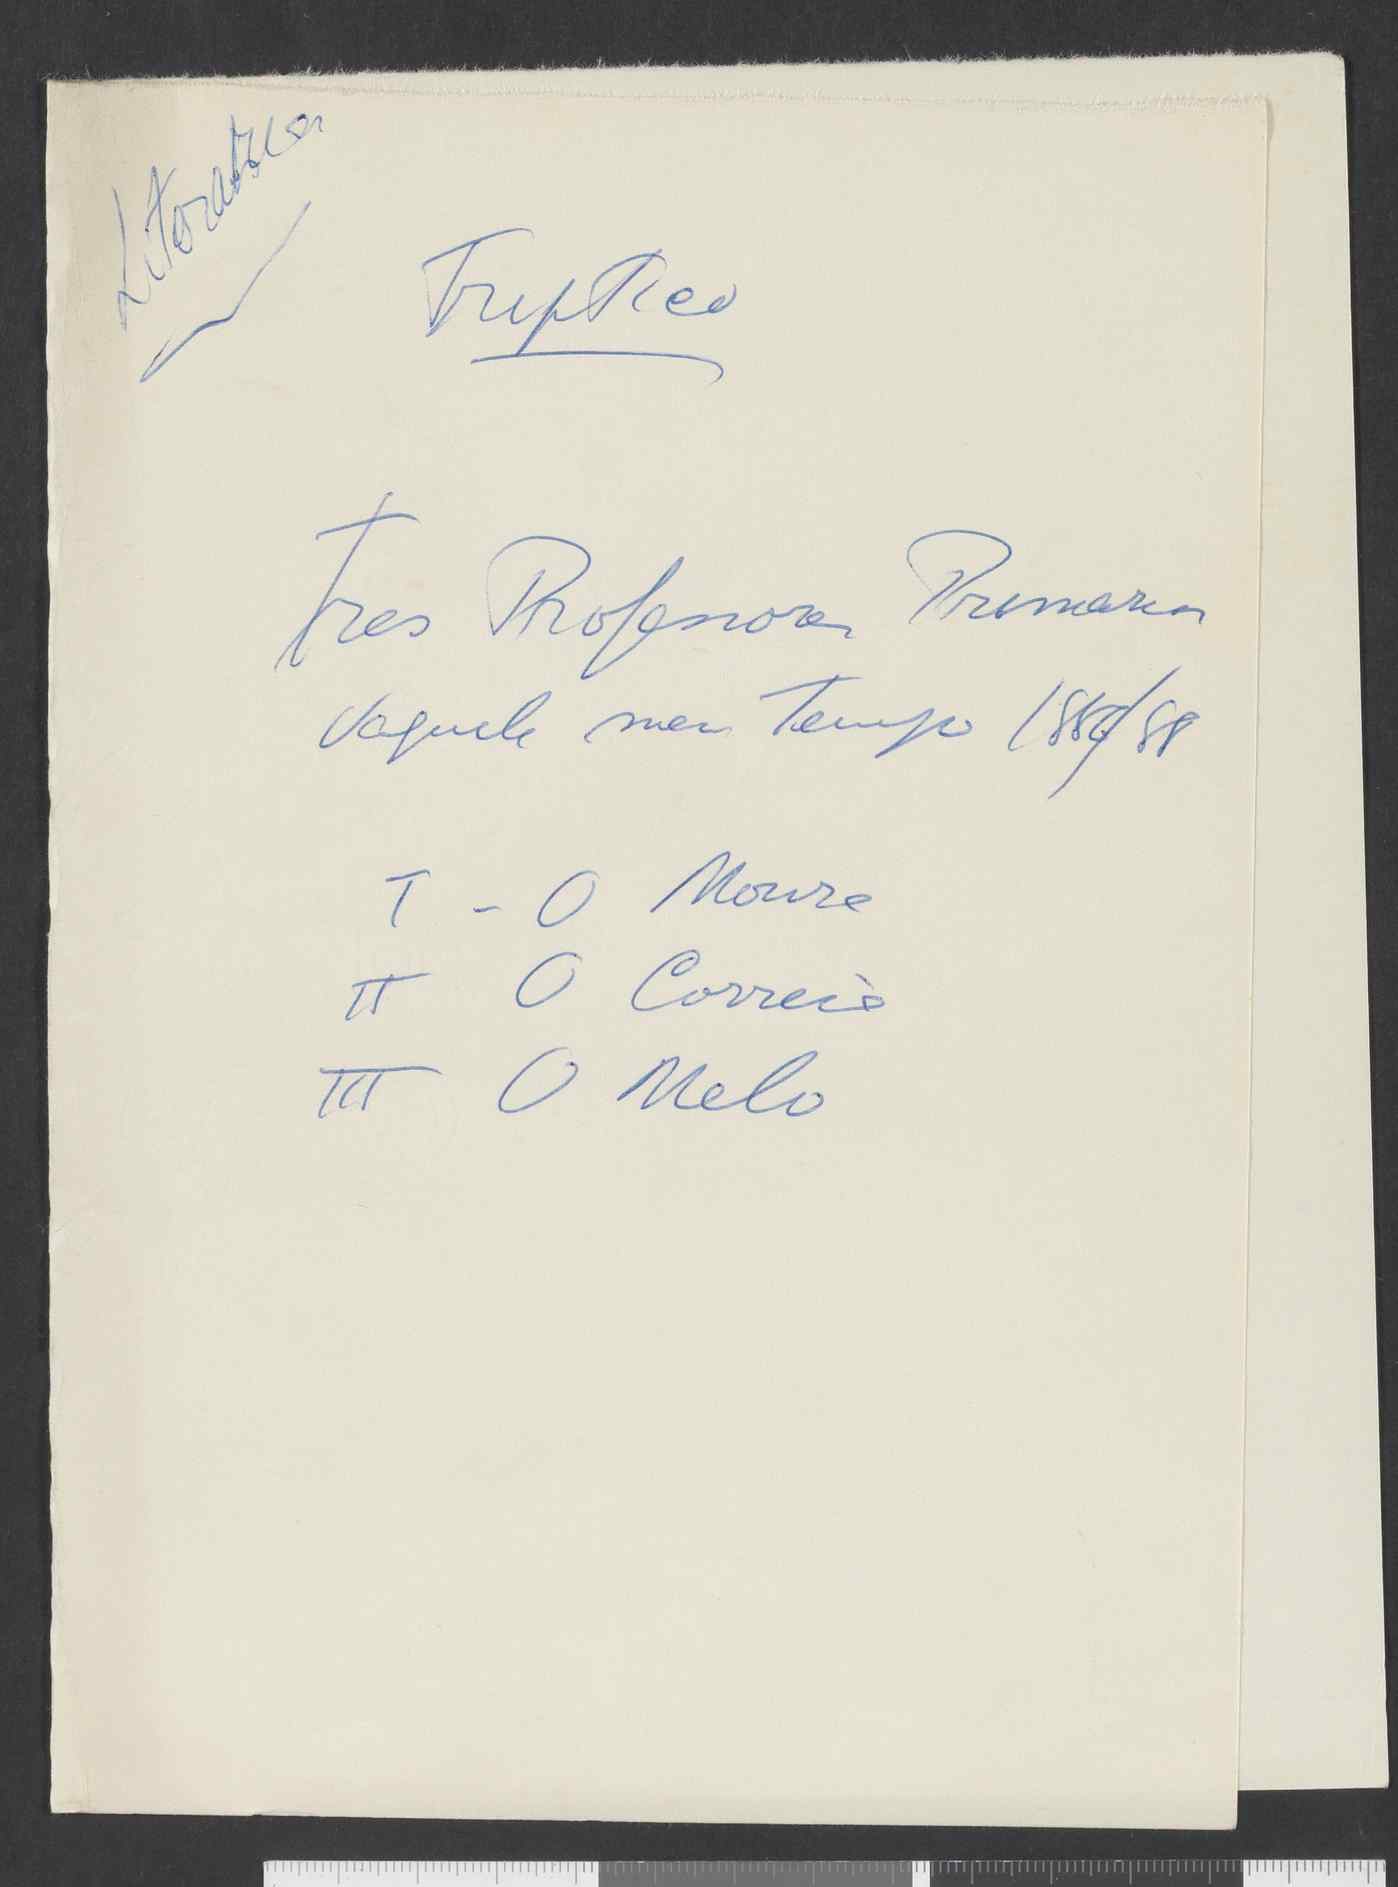 Literatura
Triptico
Tres Professores Primarios
daquele meu Tempo 1886/88
I - O Moura
II O Correia
III O Melo